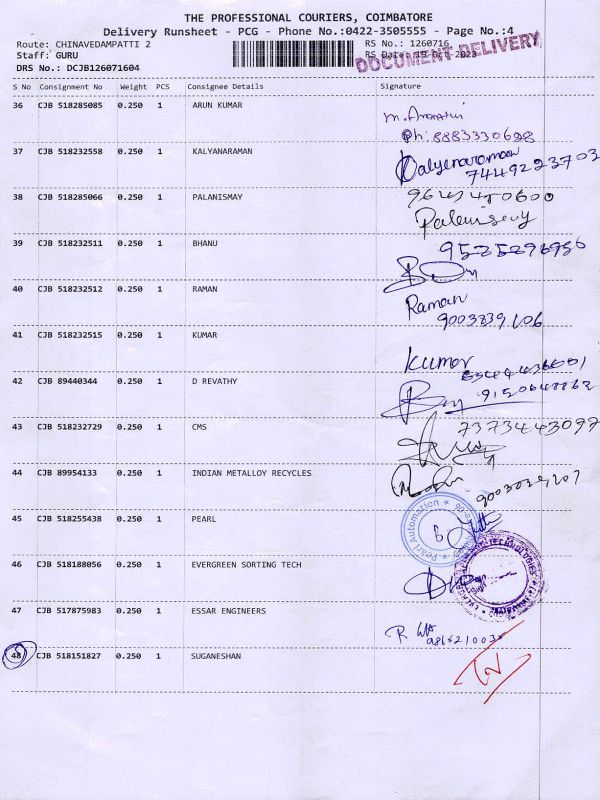 THE PROFESSIONAL COURIERS, COIMBATORE
Delivery Runsheet - PCG - Phone No.:0422-3505555 - Page No.:4
Route: CHINAVEDAMPATTI 2 RS No.: 1260716
Staff: GURU RS Date: 19 Oct 2023
DOCUMENT DELIVERY
DRS No.: DCJB126071604
S No Consignment No Weight PCS Consignee Details Signature
36 CJB 518285085 0.250 1 ARUN KUMAR
Ph: 8883330628
37 CJB 518232558 0.250 1 KALYANARAMAN Kalyanaraman
7449223703
38 CJB 518285066 0.250 1 PALANISMAY
39 CJB 518232511 0.250 1 BHANU 9525296986
40 CJB 518232512 0.250 1 RAMAN Raman
41 CJB 518232515 0.250 1 KUMAR
Kumar
42 CJB 89440344 0.250 1 D REVATHY
43 CJB 518232729 0.250 1 CMS 7373443097
44 CJB 89954133 0.250 1 INDIAN METALLOY RECYCLES
45 CJB 518255438 0.250 1 PEARL Pearl Automation
46 CJB 518188056 0.250 1 EVERGREEN SORTING TECH
47 CJB 517875983 0.250 1 ESSAR ENGINEERS
48 CJB 518151827 0.250 1 SUGANESHAN